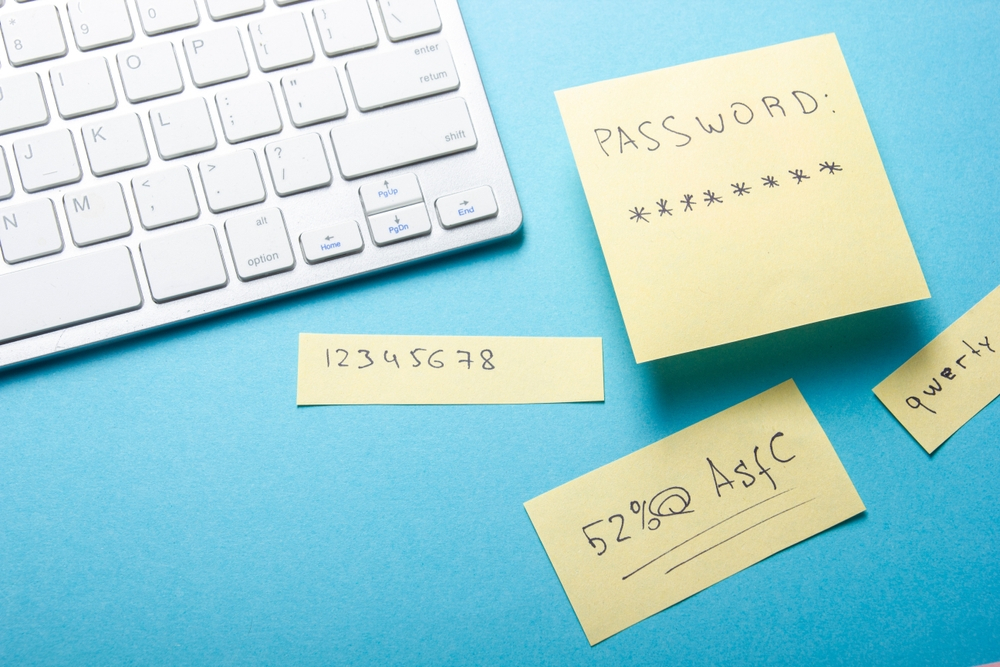 * 8
( 9
) 0
O
P
{ [
} ]
| \
I
enter
return
J
K
L
: ;
" '
shift
N
M
< ,
> .
? /
alt
option
Home
PgUp
PgDn
End
PASSWORD:
*******
12345678
52%@ AsfC
qwerty